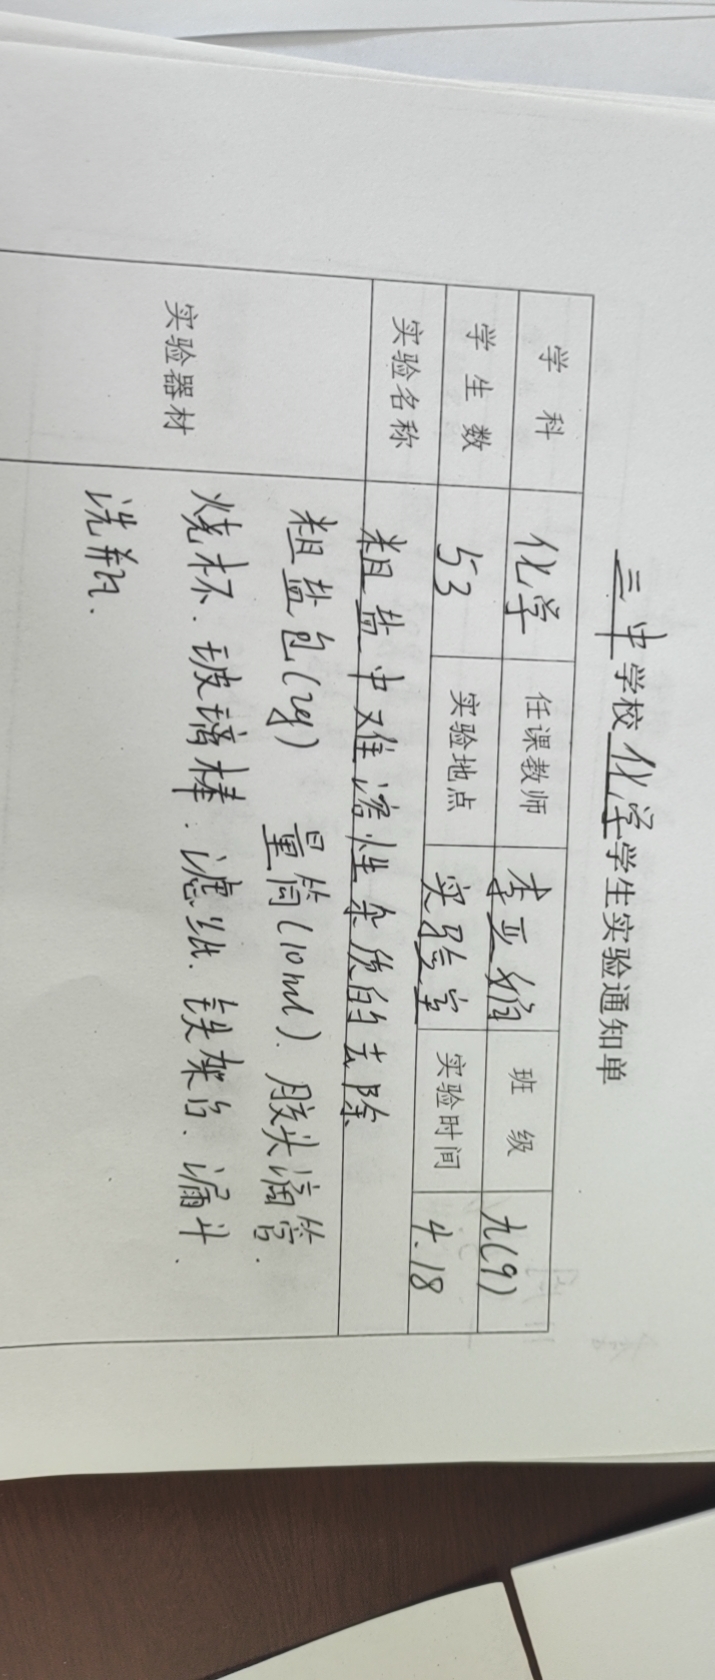 三中学校化学学生实验通知单
学 科 化学 任课教师 李亚娟 班 级 九(9)
学 生 数 53 实验地点 实验室 实验时间 4.18
实验名称 粗盐中难溶性杂质的去除
实验器材
粗盐包(2g) 量筒(10ml). 胶头滴管.
烧杯. 玻璃棒. 滤纸. 铁架台. 漏斗.
洗瓶.